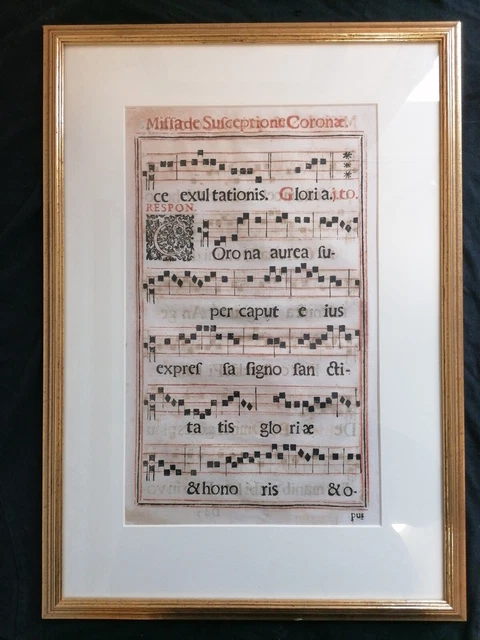 Missa de Susceptione Coronæ.
ce exultationis. Gloria. j. to.
RESPON.
COrona aurea su-
per caput eius
expressa signo sancti-
tatis gloriæ
& honoris & o-